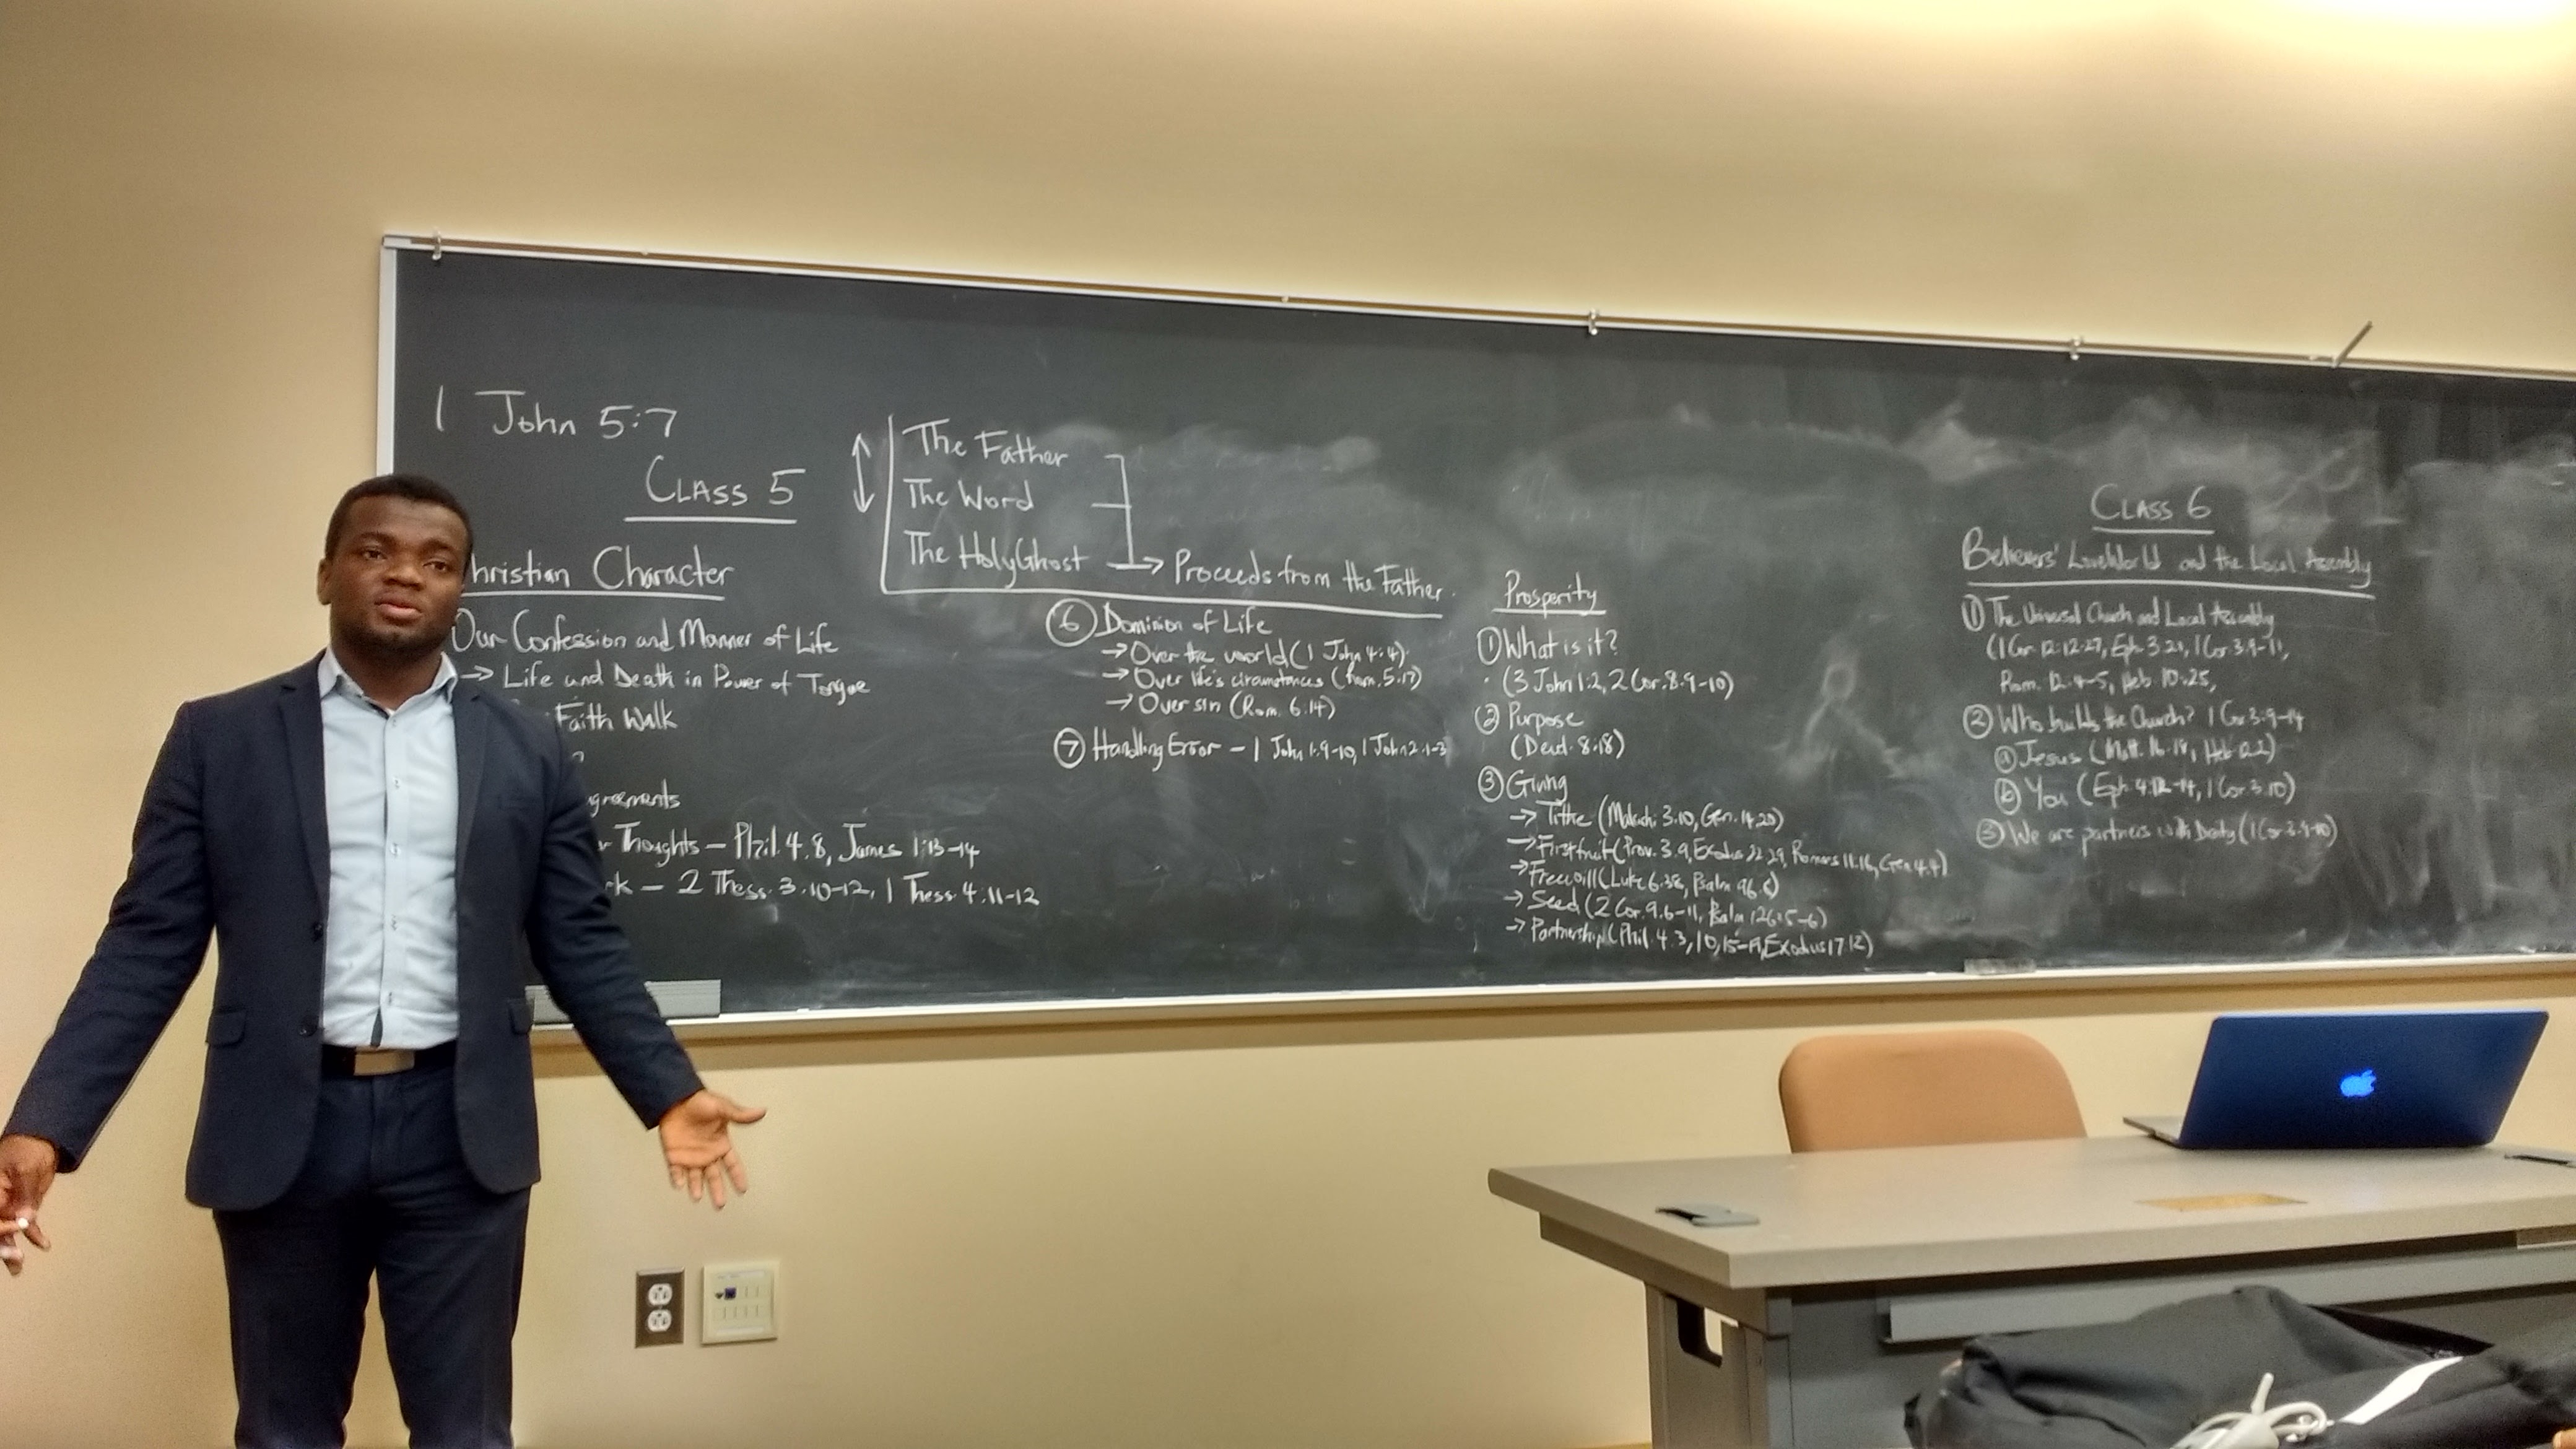 1 John 5:7
CLASS 5
hristian Character
Our Confession and Manner of Life
→ Life and Death in Power of Tongue
Faith Walk
greements
Thoughts – Phil. 4.8, James 1:13-14
rk – 2 Thess. 3.10-12, 1 Thess. 4.11-12
The Father
The Word
The HolyGhost → Proceeds from the Father.
⑥ Dominion of Life
→ Over the world (1 John 4:4)
→ Over life's circumstances (Rom. 5.17)
→ Over sin (Rom. 6.14)
⑦ Handling Error – 1 John 1.9-10, 1 John 2.1-3
Prosperity
① What is it?
(3 John 1:2, 2 Cor. 8.9-10)
② Purpose
(Deut. 8:18)
③ Giving
→ Tithe (Malachi 3.10, Gen. 14.20)
→ Firstfruit (Prov. 3.9, Exodus 22.29, Romans 11.16, Gen 4.4)
→ Freewill (Luke 6.38, Psalm 96.8)
→ Seed (2 Cor. 9.6-11, Psalm 126:5-6)
→ Partnership (Phil. 4.3, 10, 15-19, Exodus 17 12)
CLASS 6
Believers' LoveWorld and the Local Assembly
① The Universal Church and Local Assembly
(1 Cor. 12:12-27, Eph. 3.21, 1 Cor. 3.9-11,
Rom. 12.4-5, Heb. 10.25,
② Who builds the Church? 1 Cor 3:9-14
ⓐ Jesus (Matt. 16.18, Heb 12.2)
ⓑ You (Eph. 4:12-14, 1 Cor. 3.10)
③ We are partners with Deity (1 Cor 3.9-10)